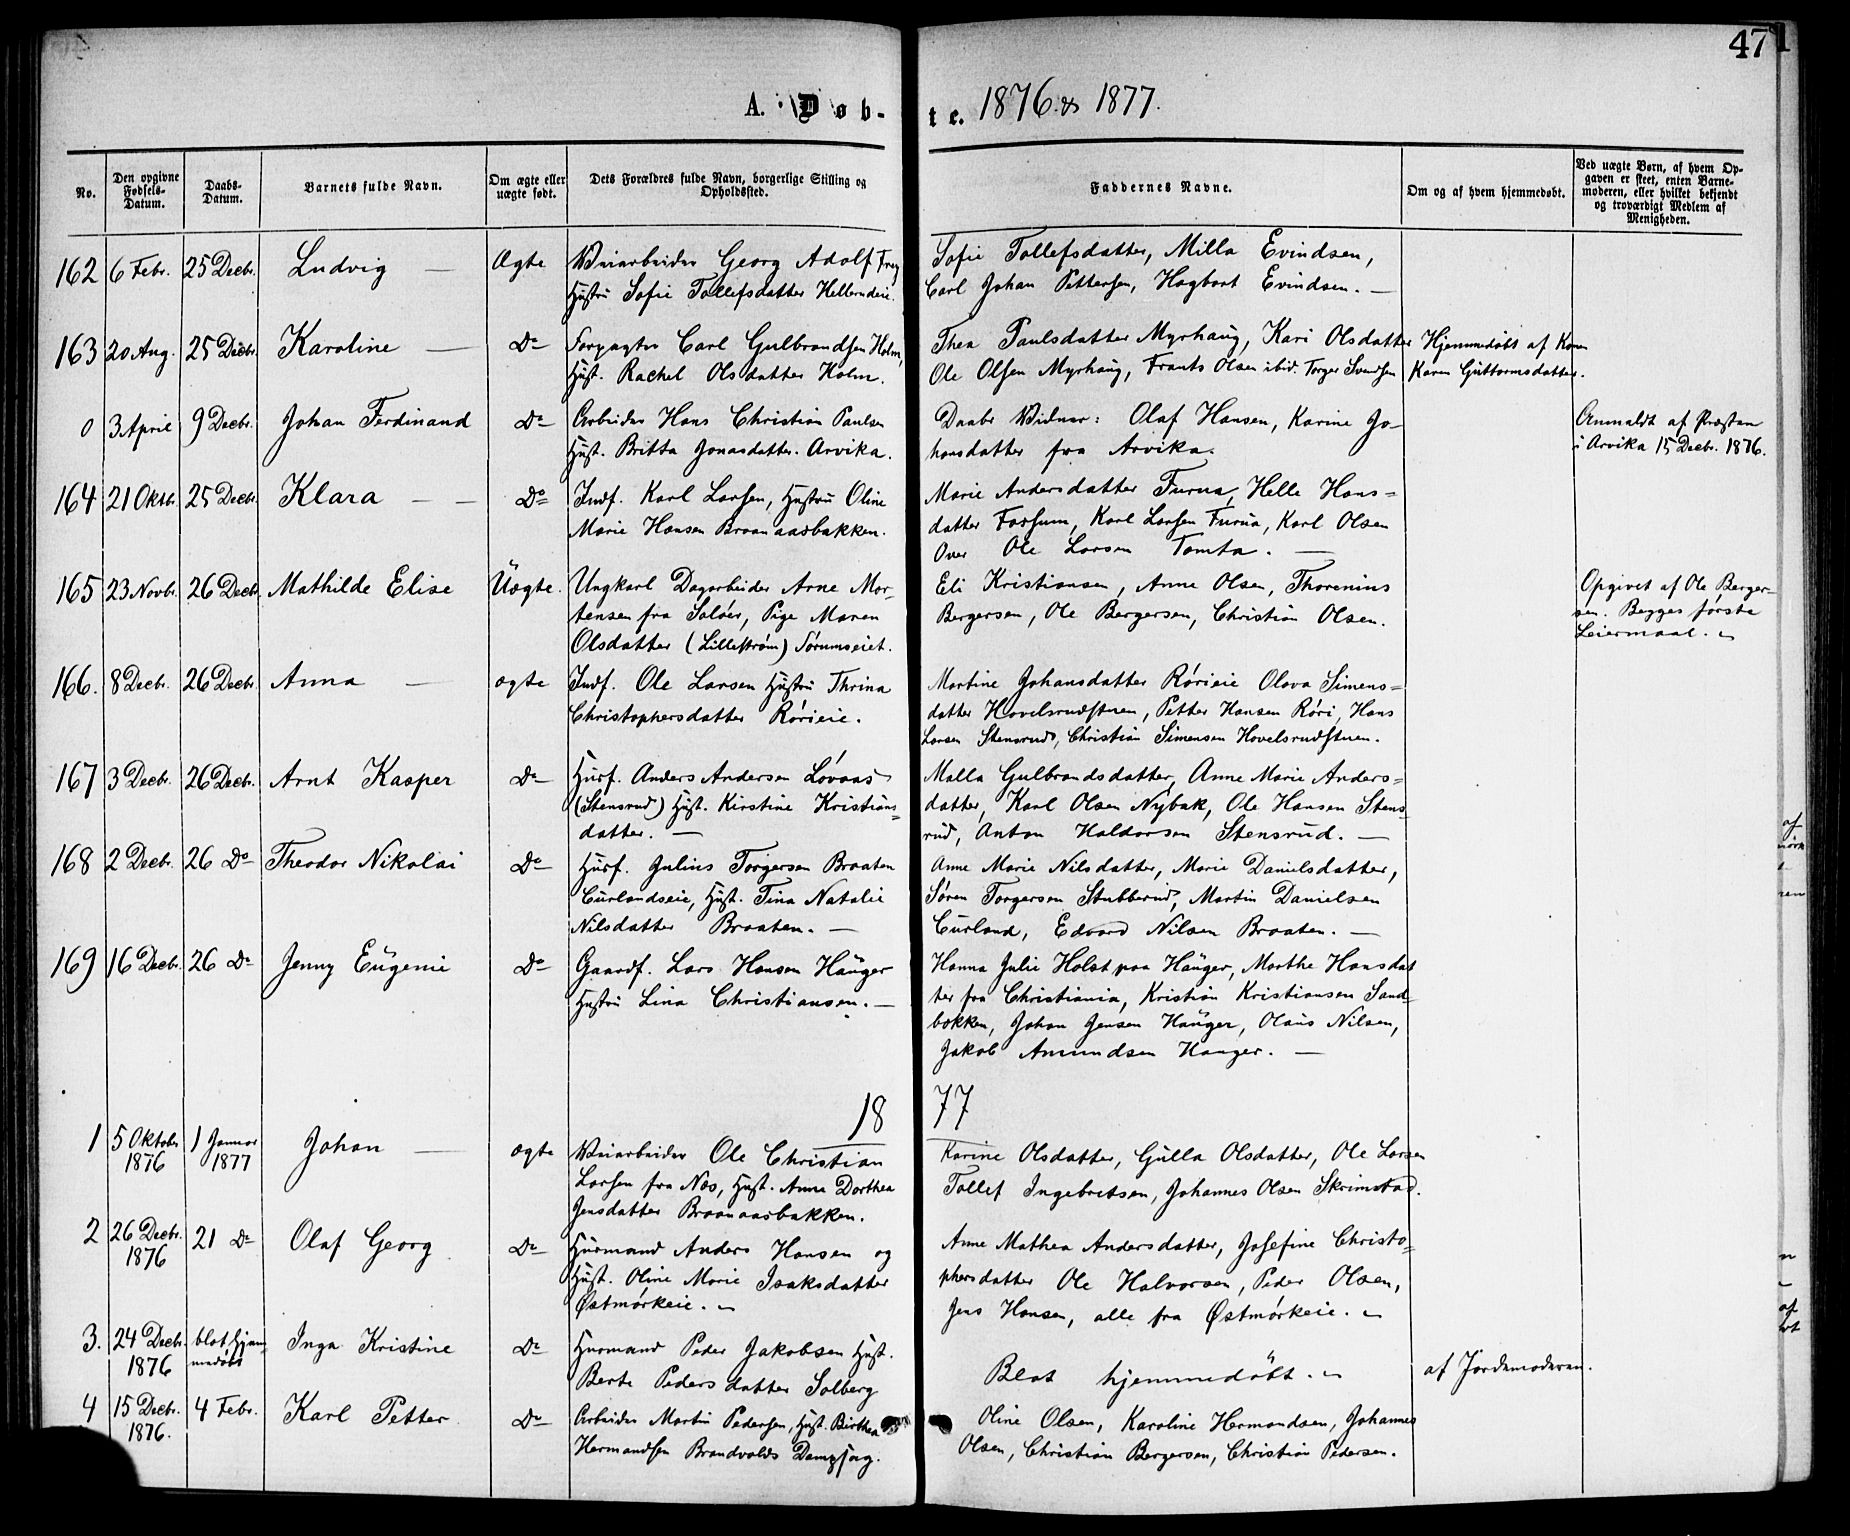 47
A. Døb-
te. 1876 & 1877.
No.
Den opgivne Fødsels-Datum.
Daabs-Datum.
Barnets fulde Navn.
Om ægte eller uægte født.
Dets Forældres fulde Navn, borgerlige Stilling og Opholdssted.
Faddernes Navne.
Om og af hvem hjemmedøbt.
Ved uægte Børn, af hvem Opgaven er skeet, enten Barnemoderen, eller hvilket bekjendt og troværdigt Medlem af Menigheden.
162 6 Febr. 25 Decbr. Ludvig — Ægte Veiarbeider Georg Adolf Frey
Hustru Sofie Tollefsdatter Hellerudeie.
Sofie Tollefsdatter, Milla Evindsen,
Carl Johan Pettersen, Hagbart Evindsen. —
163 20 Aug. 25 Decbr. Karoline — Do Forpagter Carl Gulbrandsen Holm,
Hust. Rachel Olsdatter Holm.
Thea Paulsdatter Myrhaug, Kari Olsdatter
Ole Olsen Myrhaug, Frants Olsen ibid. Torger Svendsen
Hjemmedøbt af Konen
Karen Guttormsdatter.
0 3 April 9 Decbr. Johan Ferdinand Do Arbeider Hans Christian Paulsen
Hust. Britta Jonasdatter. Arvika.
Daabs Vidner: Olaf Hansen, Karine Jo-
hansdatter fra Arvika.
Anmeldt af Præsten
i Arvika 15 Decbr. 1876.
164 21 Oktbr. 25 Decbr. Klara — — Do Indf. Karl Larsen, Hustru Oline
Marie Hansen Braanaasbakken.
Marie Andersdatter Furua, Helle Hans-
datter Fossum, Karl Larsen Furua, Karl Olsen
Over Ole Larsen Tomta. —
165 23 Novbr. 26 Decbr. Mathilde Elise Uægte. Ungkarl Dagarbeider Arne Mor-
tensen fra Soløer, Pige Maren
Olsdatter (Lillestrøm) Sørumseiet.
Eli Kristiansen, Anne Olsen, Thorenius
Bergersen, Ole Bergersen, Christian Olsen.
Opgivet af Ole Berger-
sen. Begges første
Leiermaal.
166. 8 Decbr. 26 Decbr. Anna — ægte Indf. Ole Larsen Hustru Thrina
Christophersdatter Rørieie.
Martine Johansdatter Rørieie Olava Simens-
datter Hovelsrudstuen, Petter Hansen Røri, Hans
Larsen Stensrud, Christian Simensen Hovelsrudstuen.
167 3 Decbr. 26 Decbr. Arnt Kasper Do Husf. Anders Andersen Løvaas
(Stensrud) Hust. Kirstine Kristians-
datter. —
Malla Gulbrandsdatter, Anne Marie Anders-
datter, Karl Olsen Nybak, Ole Hansen Stens-
rud, Anton Haldorsen Stensrud. —
168 2 Decbr. 26 Do Theodor Nikolai Do Husf. Julius Torgersen Braaten
Curlandseie, Hust. Tina Natalie
Nilsdatter Braaten. —
Anne Marie Nilsdatter, Marie Danielsdatter,
Søren Torgersen Stubberud, Martin Danielsen
Curland, Edvard Nilsen Braaten. —
169 16 Decbr. 26 Do Jenny Eugenie Do Gaardf. Lars Hansen Hauger
Hustru Lina Christiansen. —
Hanna Julie Holst paa Hauger, Marthe Hansdat
ter fra Christiania, Kristian Kristiansen Sand-
bakken, Johan Jensen Hauger, Olaus Nilsen,
Jakob Amundsen Hauger. —
18 77
1 5 Oktober 1876 1 Januar 1877 Johan — ægte Veiarbeider Ole Christian
Larsen fra Næs, Hust. Anne Dorthea
Jensdatter Braanaasbakken.
Karine Olsdatter, Gulla Olsdatter, Ole Larsen
Tollef Ingebretsen, Johannes Olsen Skrimstad.
2 26 Decbr. 1876 21 Do Olaf Georg Do Husmand Anders Hansen og
Hust. Oline Marie Isaksdatter
Østmørkeie.
Anne Mathea Andersdatter, Josefine Christo-
phersdatter Ole Halvorsen, Peder Olsen,
Jens Hansen, alle fra Østmørkeie.
3. 24 Decbr. 1876 blot hjem-
medøbt Inga Kristine Do Husmand Peder Jakobsen Hust.
Berte Pedersdatter Solberg
Blot hjemmedøbt.
af Jordemoderen.
4 15 Decbr. 1876. 4 Febr. Karl Petter Do Arbeider Martin Pedersen, Hust. Birthea
Hermandsen Brandvolds Dampsag.
Oline Olsen, Karoline Hermandsen, Johannes
Olsen, Christian Bergersen, Christian Pedersen.